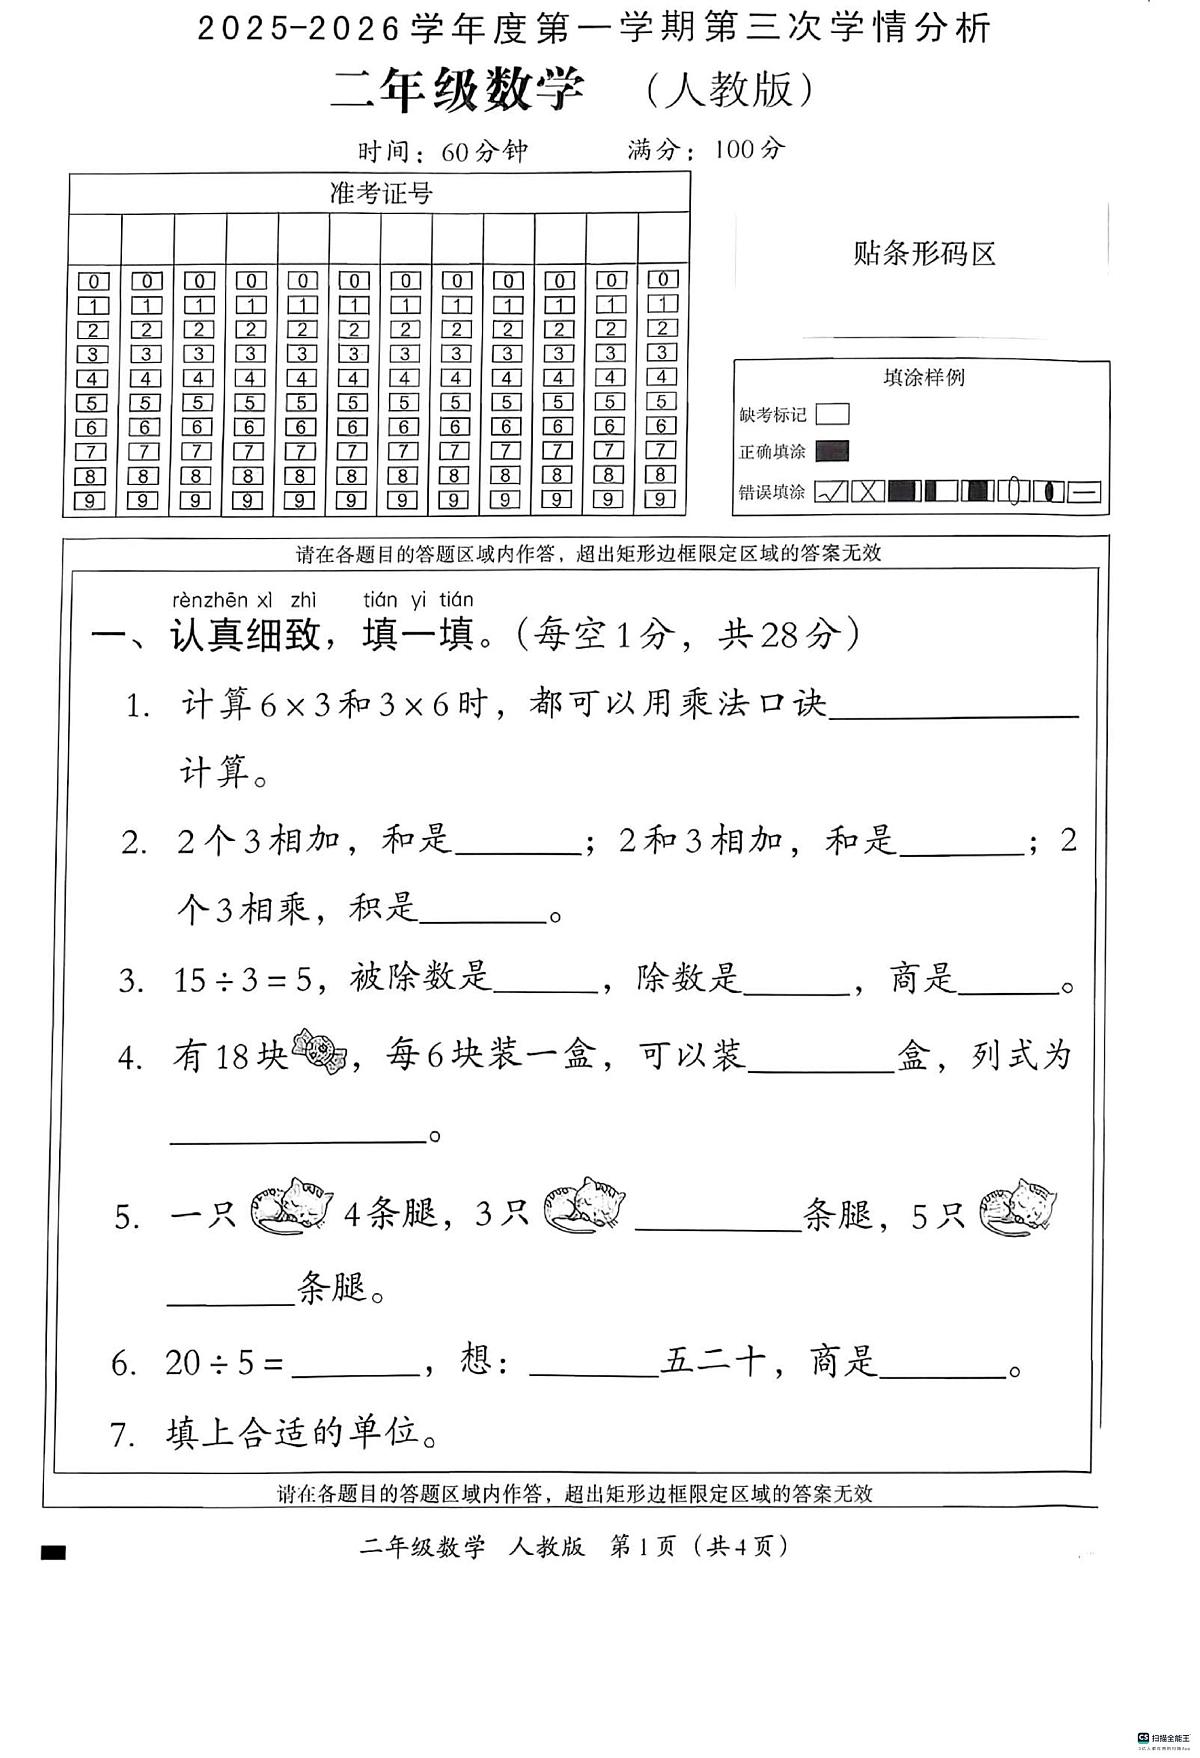 2025-2026学年度第一学期第三次学情分析
二年级数学 （人教版）
时间：60分钟 满分：100分
准考证号
0 0 0 0 0 0 0 0 0 0 0 0
1 1 1 1 1 1 1 1 1 1 1 1
2 2 2 2 2 2 2 2 2 2 2 2
3 3 3 3 3 3 3 3 3 3 3 3
4 4 4 4 4 4 4 4 4 4 4 4
5 5 5 5 5 5 5 5 5 5 5 5
6 6 6 6 6 6 6 6 6 6 6 6
7 7 7 7 7 7 7 7 7 7 7 7
8 8 8 8 8 8 8 8 8 8 8 8
9 9 9 9 9 9 9 9 9 9 9 9
贴条形码区
填涂样例
缺考标记
正确填涂
错误填涂
请在各题目的答题区域内作答，超出矩形边框限定区域的答案无效
rènzhēn xì zhì tián yi tián
一、认真细致，填一填。（每空1分，共28分）
1. 计算6×3和3×6时，都可以用乘法口诀______
计算。
2. 2个3相加，和是______；2和3相加，和是______；2
个3相乘，积是______。
3. 15÷3=5，被除数是______，除数是______，商是______。
4. 有18块，每6块装一盒，可以装______盒，列式为
______。
5. 一只 4条腿，3只 ______条腿，5只
______条腿。
6. 20÷5=______，想：______五二十，商是______。
7. 填上合适的单位。
请在各题目的答题区域内作答，超出矩形边框限定区域的答案无效
二年级数学 人教版 第1页（共4页）
CS 扫描全能王